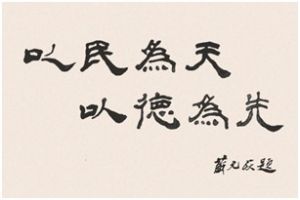 以民為天
以德為先
蕭元啟題